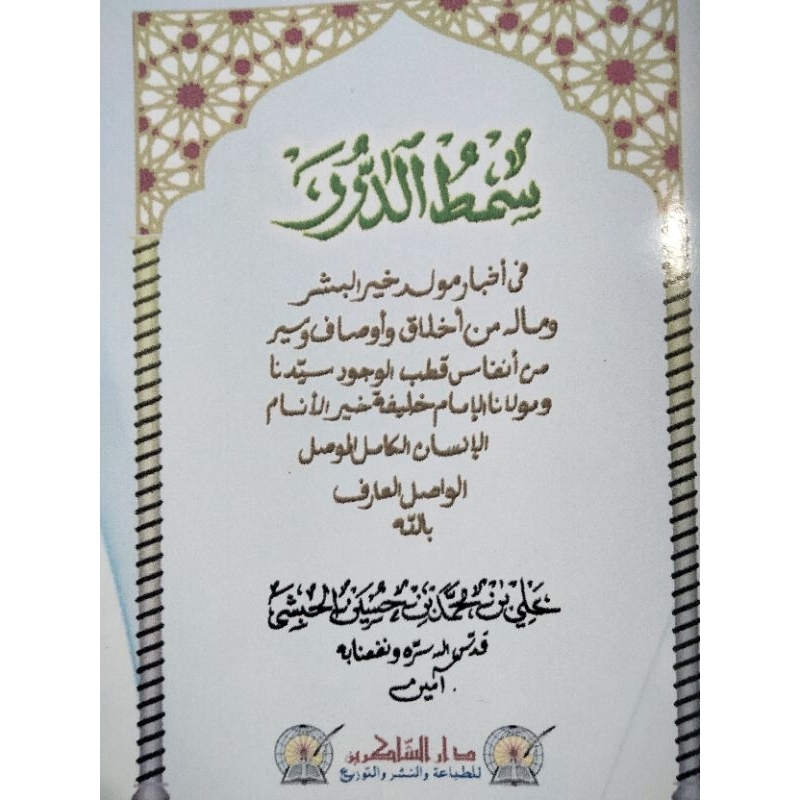 سِمْطُ الدُّرَر
في أخبار مولد خير البشر
وماله من أخلاق وأوصاف وسير
من أنفاس قطب الوجود سيّدنا
ومولانا الإمام خليفة خير الأنام
الإنسان الكامل الموصل
الواصل العارف
بالله
عَلِي بْن مُحَمَّد بْن حُسَيْن الحَبْشِي
قدّس الله سرّه ونفعنا به
آمين
دار الشاكرين
للطباعة والنشر والتوزيع